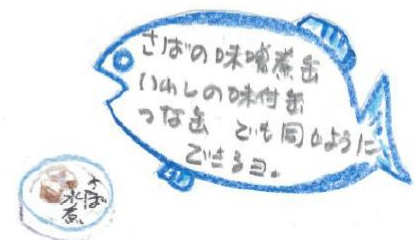 さばの味噌煮缶
いわしの味付缶
つな缶 でも同じように
できるヨ。
さば
水煮